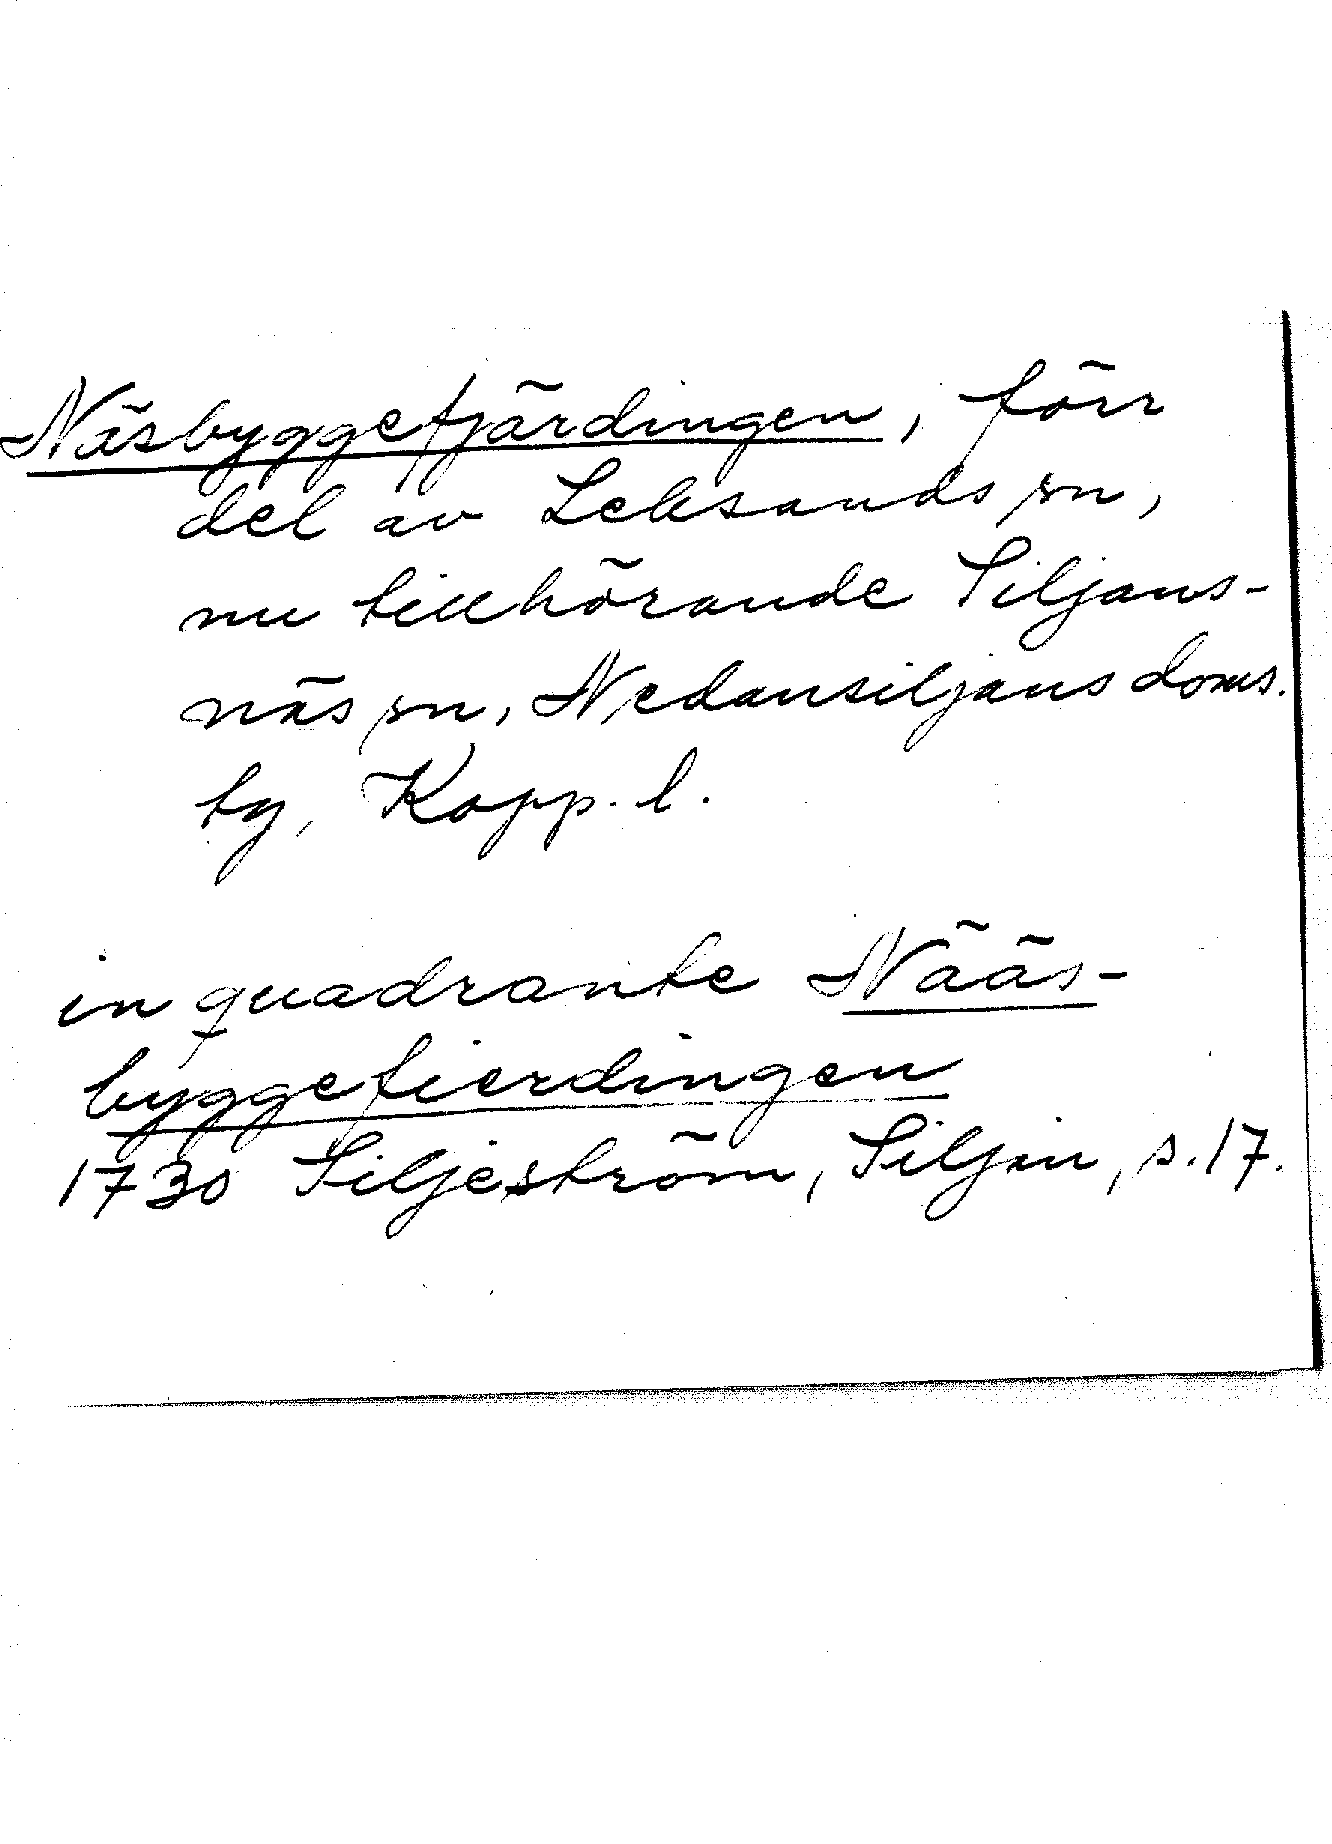 Näsbyggefjärdingen, förr
del av Leksands sn,
nu tillhörande Siljans-
näs sn, Nedansiljans doms.
by, Kopp. l.
in quadrante Nääs-
byggefierdingen
1730 Siljeström, Siljan, s. 17.